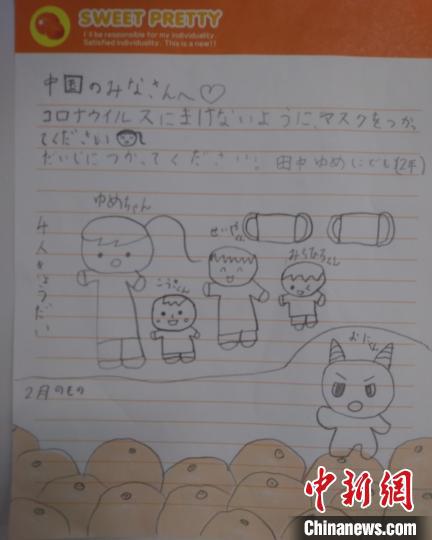 SWEET PRETTY
I'll be responsible for my individuality.
Satisfied individuality. This is a new!!
中国のみなさんへ♡
コロナウイルスにまけないように、マスクをつかっ
てください
だいじにつかってください! 田中ゆめ
ゆめちゃん
せいやくん
みちひろくん
こうきくん
4人きょうだい
おに
2月のもの
中新网
Chinanews.com